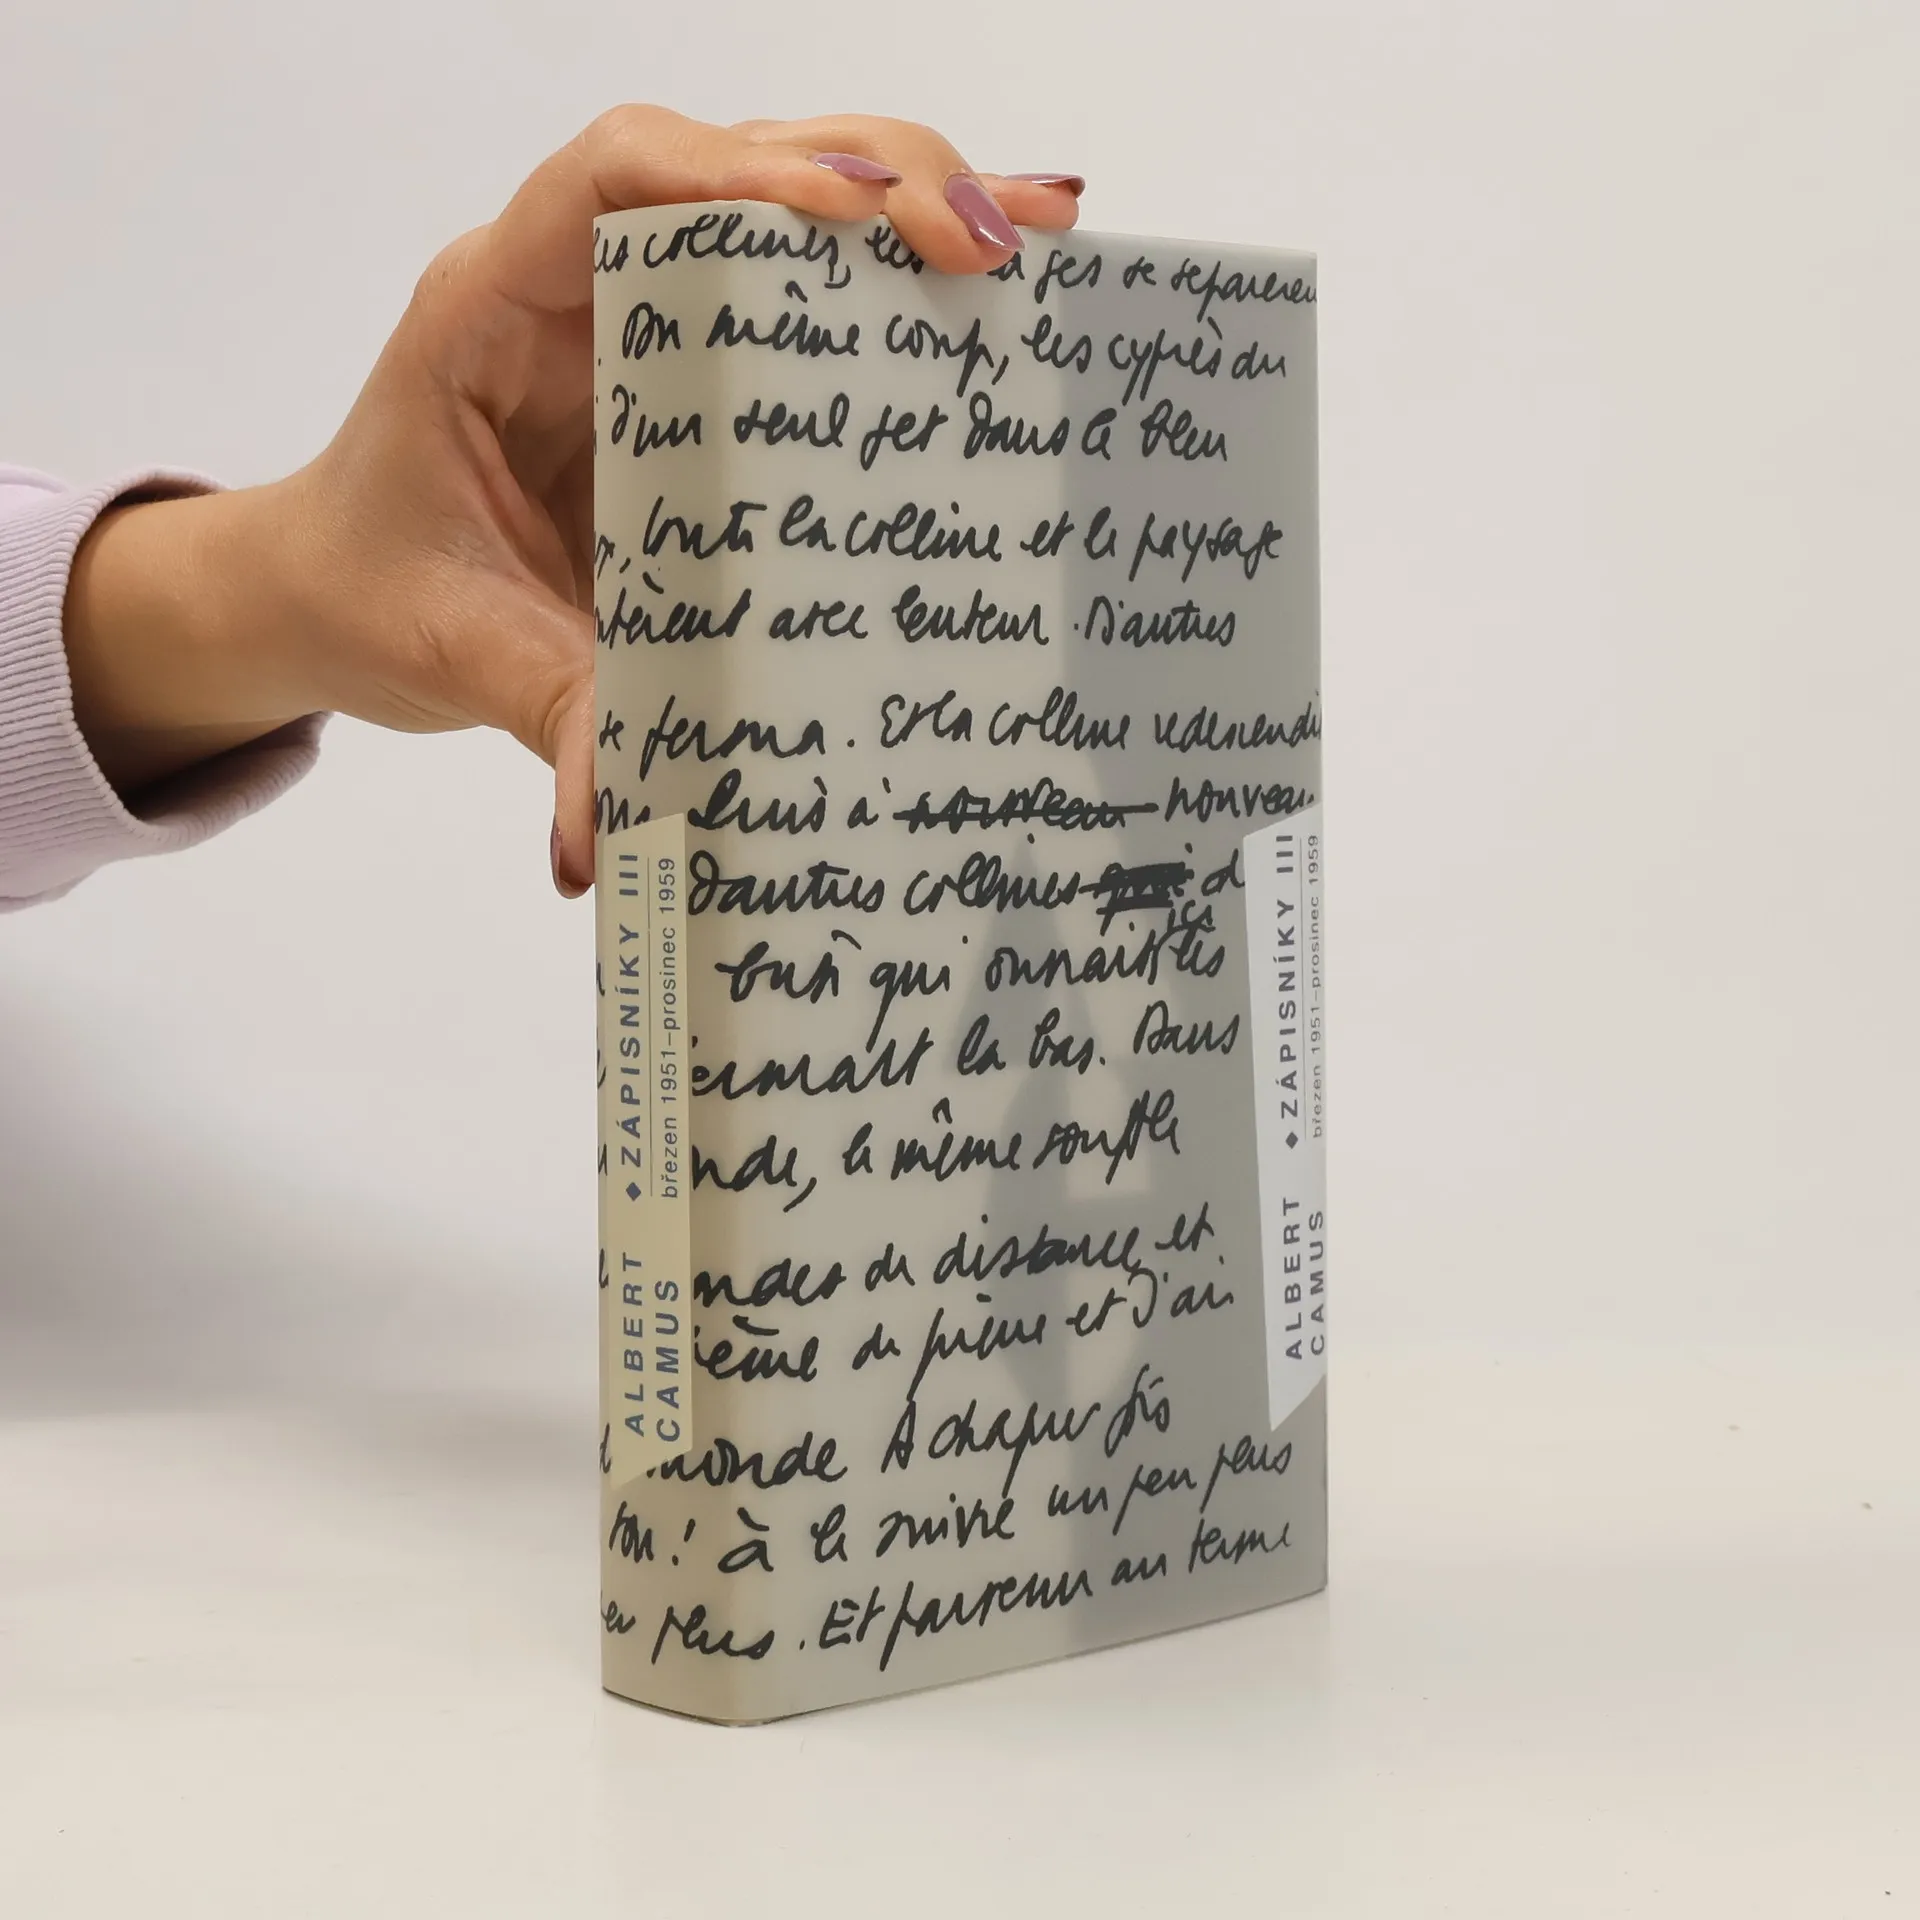 les collines, les ges se separeren
. Du même coup, les cyprès du
d'un seul jet dans le bleu
, toute la colline et le paysage
avec lenteur. D'autres
se ferma. Et la colline redescendi
à nouveau nouveau
d'autres collines qui d
qui ici les
la bas. Dans
nde, le même souffle
ndes de distance et
ième de pierre et J'ai
monde A chaque fois
ton! à le suivre un peu plus
plus. Et parvenu au terme
ALBERT CAMUS ◆ ZÁPISNÍKY III
březen 1951–prosinec 1959
ALBERT CAMUS ◆ ZÁPISNÍKY III
březen 1951–prosinec 1959